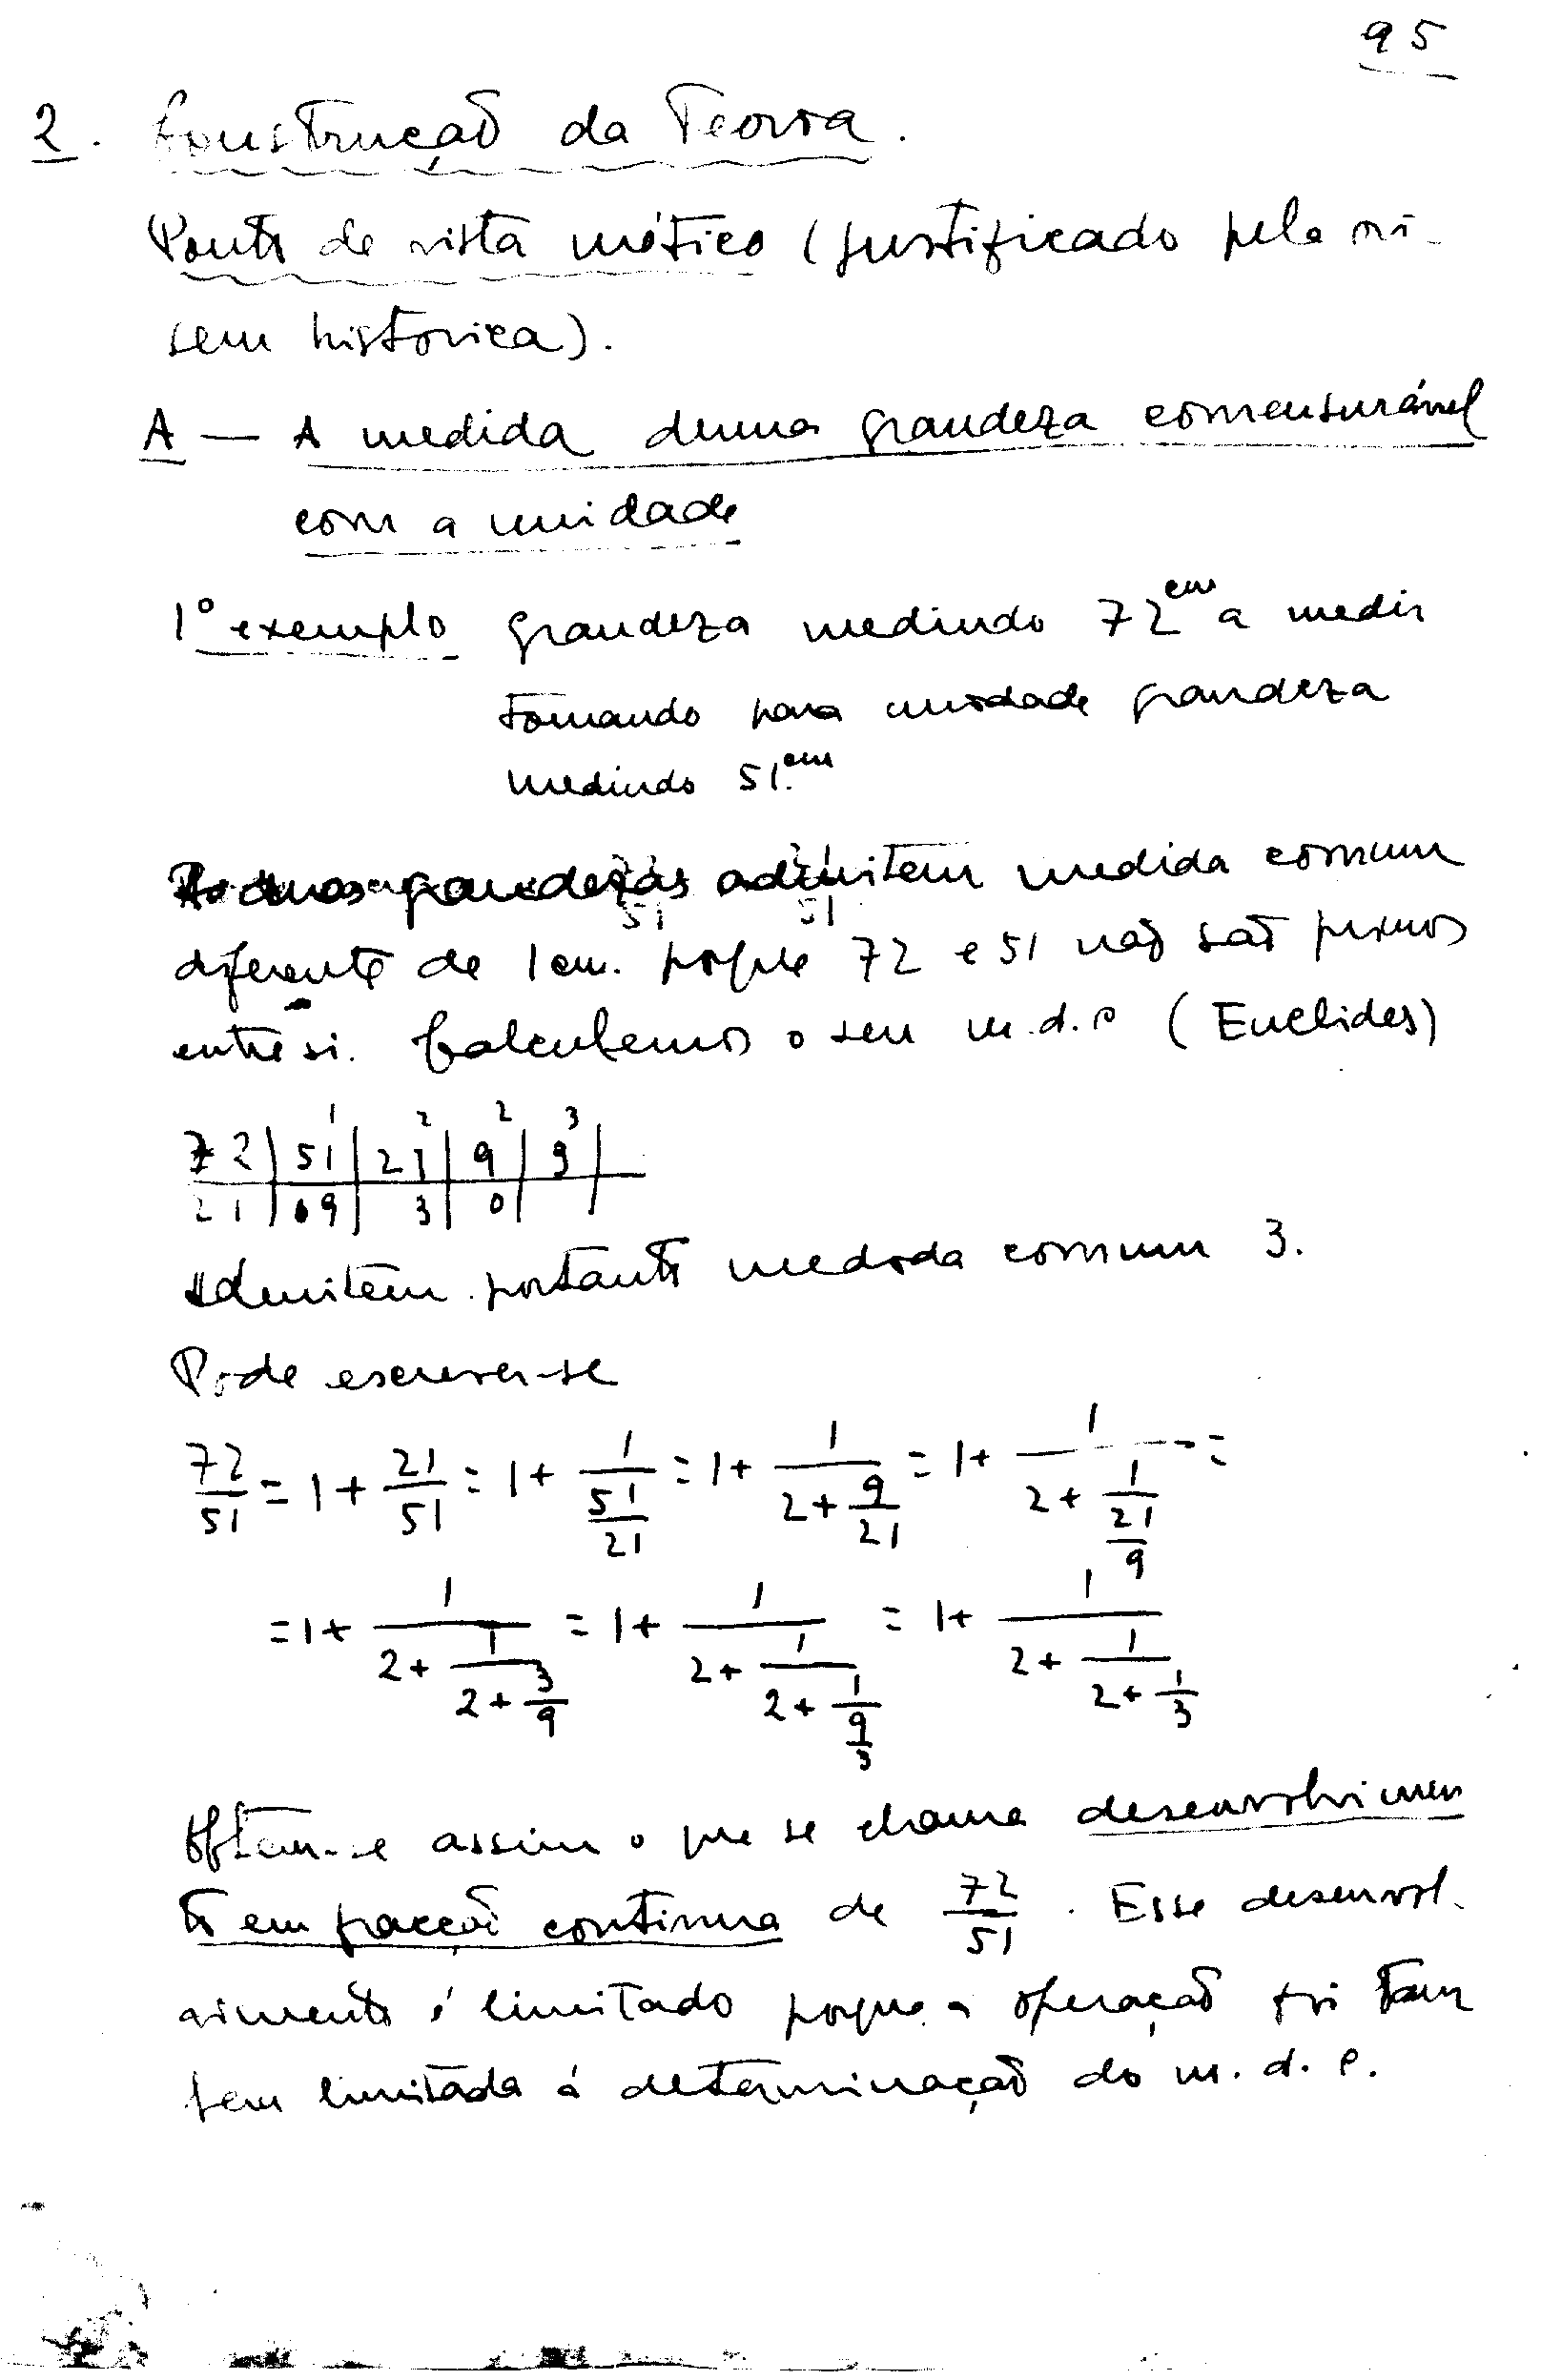 95
2. Construção da Teoria.
Ponto de vista métrico (justificado pela ori-
gem historica).
A — A medida duma grandeza comensurável
com a unidade
1º exemplo grandeza medindo 72cm a medir
tomando para unidade grandeza
medindo 51cm.
As duas grandezas admitem medida comum
diferente de 1cm. porque 72 e 51 não são primos
entre si. Calculemos o seu m.d.c (Euclides)
1 2 2 3
72 | 51 | 21 | 9 | 3 |
21 | 09 | 3 | 0 |
Admitem portanto medida comum 3.
Pode escrever-se
72/51 = 1 + 21/51 = 1 + 1/(51/21) = 1 + 1/(2 + 9/21) = 1 + 1/(2 + 1/(21/9)) =
= 1 + 1/(2 + 1/(2 + 3/9)) = 1 + 1/(2 + 1/(2 + 1/(9/3))) = 1 + 1/(2 + 1/(2 + 1/3))
Obtem-se assim o que se chama desenvolvimen
to em fracção continua de 72/51. Esse desenvol-
vimento é limitado porque a operação foi tam
bem limitada á determinação do m. d. c.